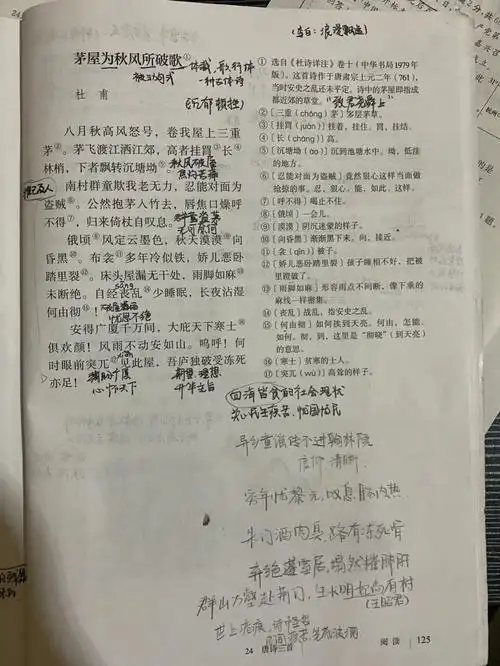 (李白:浪漫飘逸)
茅屋为秋风所破歌①
体裁,歌行体
一种古体诗
被动句式
杜 甫
(沉郁顿挫)
八月秋高风怒号,卷我屋上三重
茅②。茅飞渡江洒江郊,高者挂罥③长④
林梢,下者飘转沉塘坳⑤。
秋风破屋
焦灼苦痛
南村群童欺我老无力,忍能对面为
盗贼⑥。公然抱茅入竹去,唇焦口燥呼
不得⑦,归来倚杖自叹息。
群童盗茅
俄顷⑧风定云墨色,秋天漠漠⑨向
昏黑⑩。布衾⑪多年冷似铁,娇儿恶卧
踏里裂⑫。床头屋漏无干处,雨脚如麻⑬
未断绝。自经丧乱⑭少睡眠,长夜沾湿
何由彻⑮!
安得广厦千万间,大庇天下寒士⑯
俱欢颜!风雨不动安如山。呜呼!何
时眼前突兀⑰见此屋,吾庐独破受冻死
亦足!
心怀天下
① 选自《杜诗详注》卷十(中华书局1979年
版)。这首诗作于唐肃宗上元二年(761),
当时安史之乱还未平定。诗中的茅屋即指成
都近郊的草堂。
②〔三重(chóng)茅〕多层茅草。
③〔挂罥(juàn)〕挂着,挂住。罥,挂结。
④〔长(cháng)〕高。
⑤〔沉塘坳(ào)〕沉到池塘水中。坳,低洼
的地方。
⑥〔忍能对面为盗贼〕竟然狠心这样当面做
抢掠的事。忍,狠心。能,如此、这样。
⑦〔呼不得〕喝止不住。
⑧〔俄顷〕一会儿。
⑨〔漠漠〕阴沉迷蒙的样子。
⑩〔向昏黑〕渐渐黑下来。向,接近。
⑪〔衾(qīn)〕被子。
⑫〔娇儿恶卧踏里裂〕孩子睡相不好,把被
里蹬破了。
⑬〔雨脚如麻〕形容雨点不间断,像下垂的
麻线一样密集。
⑭〔丧乱〕战乱,指安史之乱。
⑮〔何由彻〕如何挨到天亮。何由,怎能、
如何。彻,到,这里是“彻晓”(到天亮)
的意思。
⑯〔寒士〕贫寒的士人。
⑰〔突兀(wù)〕高耸的样子。
关心民生疾苦,忧国忧民
穷年忧黎元,叹息肠内热
朱门酒肉臭,路有冻死骨
群山万壑赴荆门,生长明妃尚有村
(王昭君)
24 唐诗三首
阅读 125